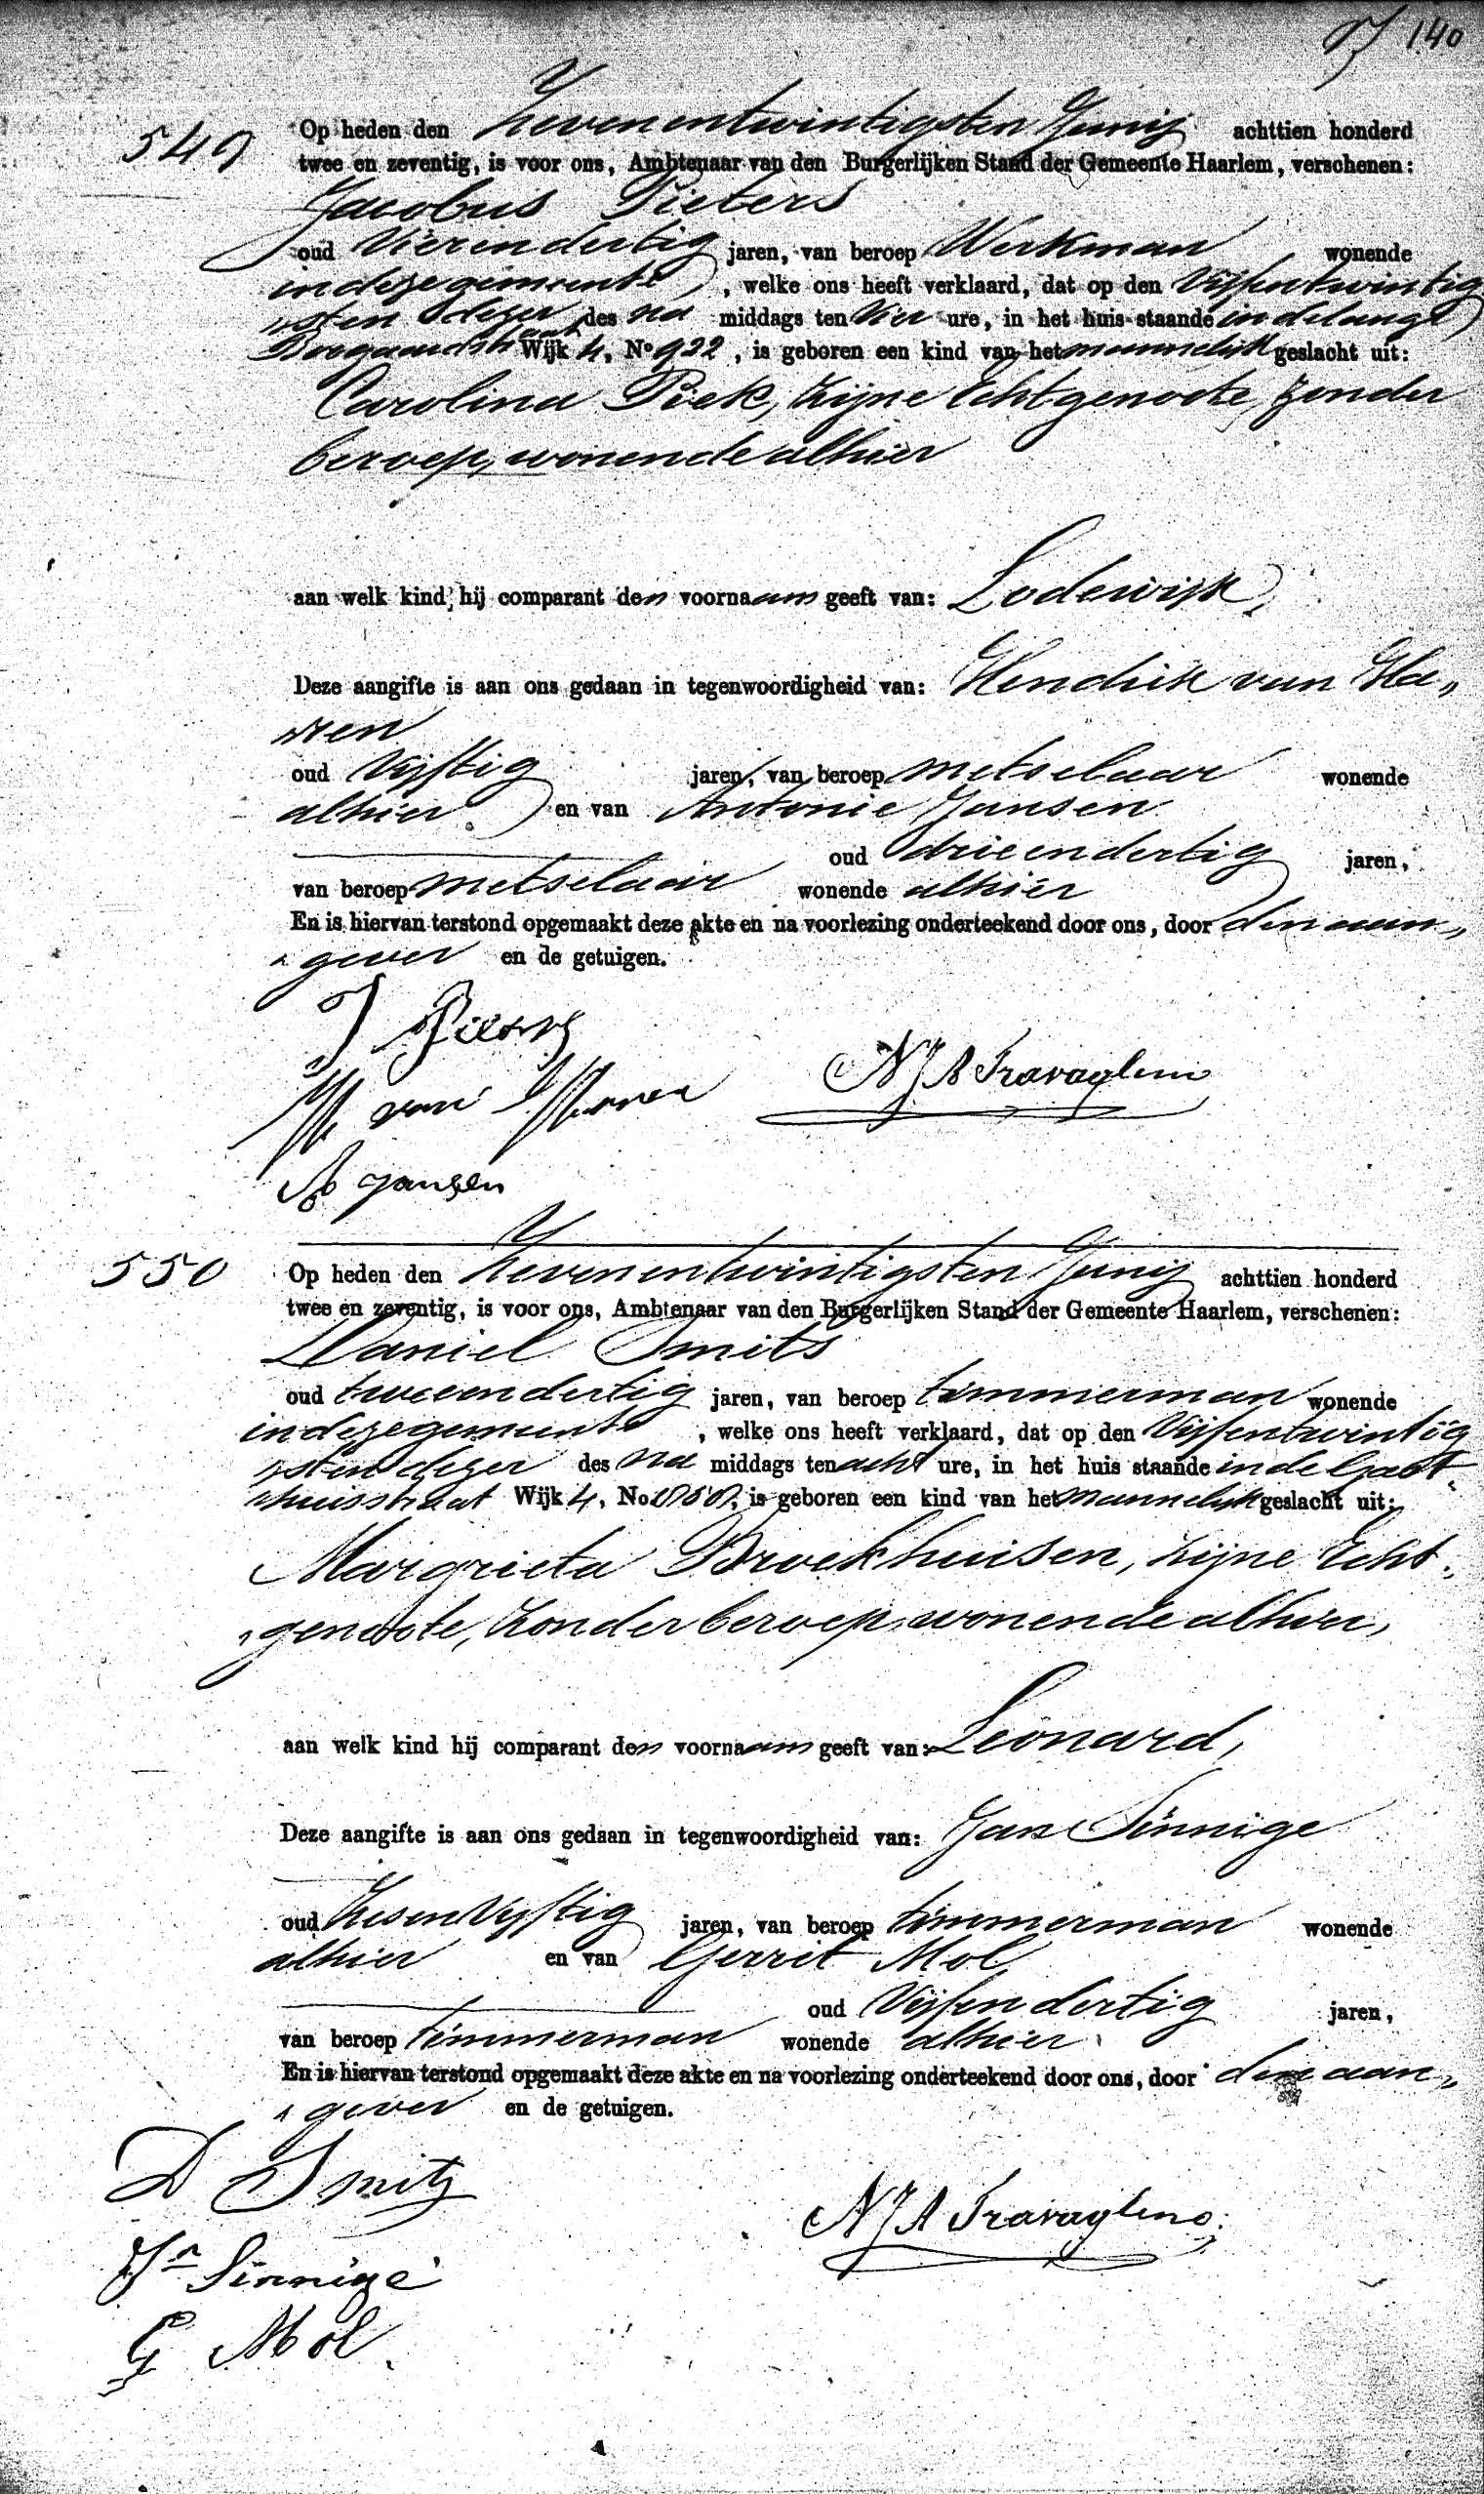 140
549
Op heden den Zevenentwintigsten Junij achttien honderd
twee en zeventig, is voor ons, Ambtenaar van den Burgerlijken Stand der Gemeente Haarlem, verschenen:
Jacobus Pieters
oud Vierendertig jaren, van beroep Werkman wonende
in deze gemeente, welke ons heeft verklaard, dat op den Vijfentwintig
sten dezer des na middags ten Vier ure, in het huis staande in de lange
Boogaardstraat Wijk 4, No 922, is geboren een kind van het mannelijk geslacht uit:
Carolina Piek, Zijne Echtgenoote, Zonder
beroep, wonende alhier
aan welk kind hij comparant den voornaam geeft van: Lodewijk,
Deze aangifte is aan ons gedaan in tegenwoordigheid van: Hendrik van Ha„
„ren
oud Vijftig jaren, van beroep metselaar wonende
alhier en van Antonie Jansen
oud drieendertig jaren,
van beroep metselaar wonende alhier
En is hiervan terstond opgemaakt deze akte en na voorlezing onderteekend door ons, door den aan„
„gever en de getuigen.
J Pieters
H van Haren
NJA Travaglino
A Jansen
550
Op heden den Zevenentwintigsten Junij achttien honderd
twee en zeventig, is voor ons, Ambtenaar van den Burgerlijken Stand der Gemeente Haarlem, verschenen:
Daniel Smits
oud tweeendertig jaren, van beroep timmerman wonende
in deze gemeente, welke ons heeft verklaard, dat op den Vijfentwintig
sten dezer des na middags ten acht ure, in het huis staande in de Gast„
„huisstraat Wijk 4, No is geboren een kind van het mannelijk geslacht uit:
Margrieta Broekhuisen, Zijne Echt„
„genoote, Zonder beroep, wonende alhier,
aan welk kind hij comparant den voornaam geeft van: Leonard,
Deze aangifte is aan ons gedaan in tegenwoordigheid van: Jan Sinnige
oud Zesenvijftig jaren, van beroep timmerman wonende
alhier en van Gerrit Mol
oud Vijfendertig jaren,
van beroep timmerman wonende alhier
En is hiervan terstond opgemaakt deze akte en na voorlezing onderteekend door ons, door den aan„
„gever en de getuigen.
D Smitz
NJA Travaglino
Jn Sinnige
G Mol